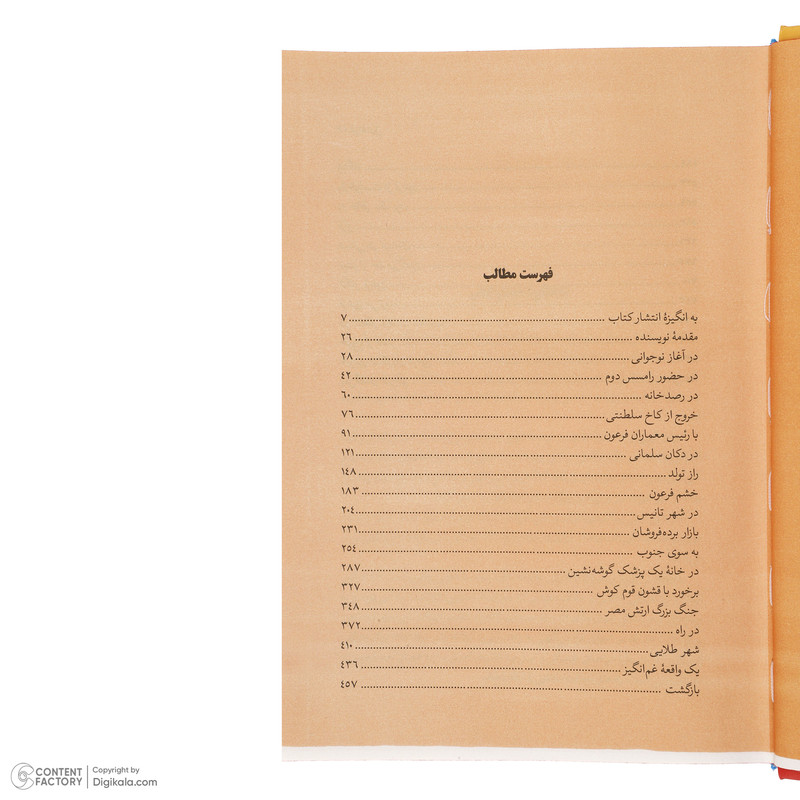 فهرست مطالب
به انگیزهٔ انتشار کتاب ........ ۷
مقدمهٔ نویسنده ........ ۲۶
در آغاز نوجوانی ........ ۲۸
در حضور رامسس دوم ........ ۴۲
در رصدخانه ........ ۶۰
خروج از کاخ سلطنتی ........ ۷۶
با رئیس معماران فرعون ........ ۹۱
در دکان سلمانی ........ ۱۲۱
راز تولد ........ ۱۴۸
خشم فرعون ........ ۱۸۳
در شهر تانیس ........ ۲۰۴
بازار برده‌فروشان ........ ۲۳۱
به سوی جنوب ........ ۲۵۴
در خانهٔ یک پزشک گوشه‌نشین ........ ۲۸۷
برخورد با قشون قوم کوش ........ ۳۲۷
جنگ بزرگ ارتش مصر ........ ۳۴۸
در راه ........ ۳۷۲
شهر طلایی ........ ۴۱۰
یک واقعهٔ غم‌انگیز ........ ۴۳۶
بازگشت ........ ۴۵۷
CONTENT FACTORY
Copyright by
Digikala.com